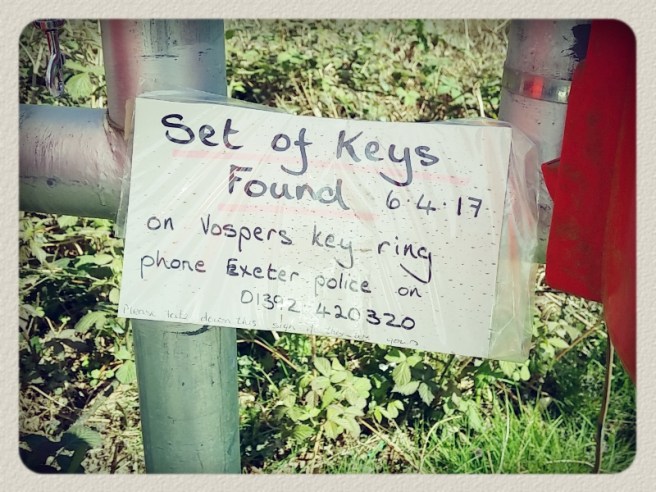 Set of Keys
Found 6.4.17
on Vospers key-ring
phone Exeter police on
01392 420320
Please take down this sign if